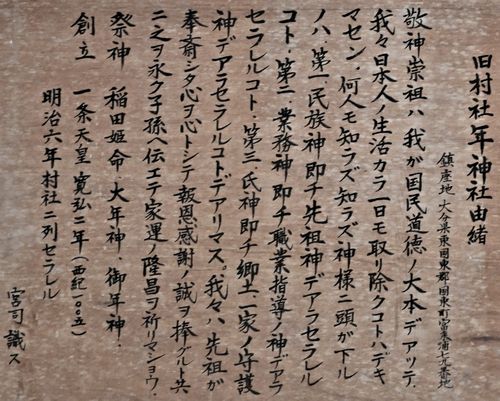 旧村社年神社由緒
鎮座地 大分県東国東郡国東町富来浦七九番地
敬神崇祖ハ我が国民道徳ノ大本デアッテ、
我々日本人ノ生活カラ一日モ取リ除クコトハデキ
マセン、何人モ知ラズ知ラズ神様ニ頭が下ル
ノハ、第一、民族神即チ先祖神デアラセラレル
コト、第二、業務神即チ職業指導ノ神デアラ
セラレルコト、第三、氏神即チ郷土、一家ノ守護
神デアラセラレルコトデアリマス、我々ハ先祖が
奉斎シタ心ヲ心トシテ報恩感謝ノ誠ヲ捧グルト共
ニ之ヲ永ク子孫へ伝エテ家運ノ隆昌ヲ祈リマショウ、
祭神 稲田姫命、大年神、御年神、
創立 一条天皇寛弘二年(西紀一〇〇五)
明治六年村社ニ列セラレル
宮司識ス